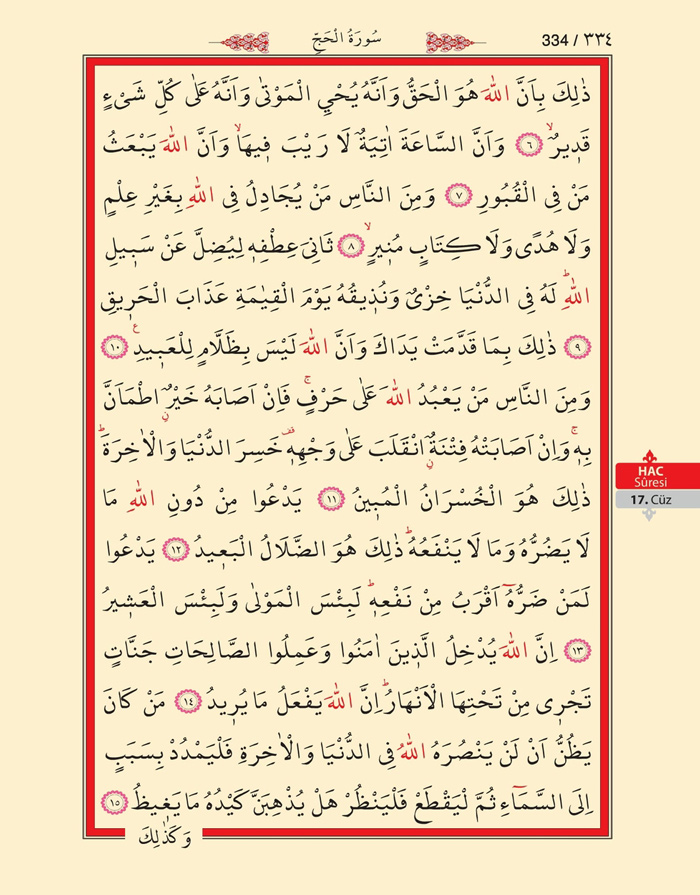 334 / ٣٣٤
سُورَةُ الْحَجِّ
ذٰلِكَ بِاَنَّ اللّٰهَ هُوَ الْحَقُّ وَاَنَّهُ يُحْيِ الْمَوْتٰى وَاَنَّهُ عَلٰى كُلِّ شَىْءٍ
قَد۪يرٌۙ ﴿٦﴾ وَاَنَّ السَّاعَةَ اٰتِيَةٌ لَا رَيْبَ ف۪يهَاۙ وَاَنَّ اللّٰهَ يَبْعَثُ
مَنْ فِى الْقُبُورِ ﴿٧﴾ وَمِنَ النَّاسِ مَنْ يُجَادِلُ فِى اللّٰهِ بِغَيْرِ عِلْمٍ
وَلَا هُدًى وَلَا كِتَابٍ مُن۪يرٍۙ ﴿٨﴾ ثَانِىَ عِطْفِه۪ لِيُضِلَّ عَنْ سَب۪يلِ
اللّٰهِۜ لَهُ فِى الدُّنْيَا خِزْىٌ وَنُذ۪يقُهُ يَوْمَ الْقِيٰمَةِ عَذَابَ الْحَر۪يقِ
﴿٩﴾ ذٰلِكَ بِمَا قَدَّمَتْ يَدَاكَ وَاَنَّ اللّٰهَ لَيْسَ بِظَلَّامٍ لِلْعَب۪يدِ۟ ﴿١٠﴾
وَمِنَ النَّاسِ مَنْ يَعْبُدُ اللّٰهَ عَلٰى حَرْفٍۚ فَاِنْ اَصَابَهُ خَيْرٌۨ اطْمَاَنَّ
بِه۪ۚ وَاِنْ اَصَابَتْهُ فِتْنَةٌۨ انْقَلَبَ عَلٰى وَجْهِه۪۠ خَسِرَ الدُّنْيَا وَالْاٰخِرَةَۜ
ذٰلِكَ هُوَ الْخُسْرَانُ الْمُب۪ينُ ﴿١١﴾ يَدْعُوا مِنْ دُونِ اللّٰهِ مَا
لَا يَضُرُّهُ وَمَا لَا يَنْفَعُهُۜ ذٰلِكَ هُوَ الضَّلَالُ الْبَع۪يدُ ﴿١٢﴾ يَدْعُوا
لَمَنْ ضَرُّهُٓ اَقْرَبُ مِنْ نَفْعِه۪ۜ لَبِئْسَ الْمَوْلٰى وَلَبِئْسَ الْعَش۪يرُ
﴿١٣﴾ اِنَّ اللّٰهَ يُدْخِلُ الَّذ۪ينَ اٰمَنُوا وَعَمِلُوا الصَّالِحَاتِ جَنَّاتٍ
تَجْر۪ى مِنْ تَحْتِهَا الْاَنْهَارُۜ اِنَّ اللّٰهَ يَفْعَلُ مَا يُر۪يدُ ﴿١٤﴾ مَنْ كَانَ
يَظُنُّ اَنْ لَنْ يَنْصُرَهُ اللّٰهُ فِى الدُّنْيَا وَالْاٰخِرَةِ فَلْيَمْدُدْ بِسَبَبٍ
اِلَى السَّمَٓاءِ ثُمَّ لْيَقْطَعْ فَلْيَنْظُرْ هَلْ يُذْهِبَنَّ كَيْدُهُ مَا يَغ۪يظُ ﴿١٥﴾
وَكَذٰلِكَ
HAC
Sûresi
17. Cüz